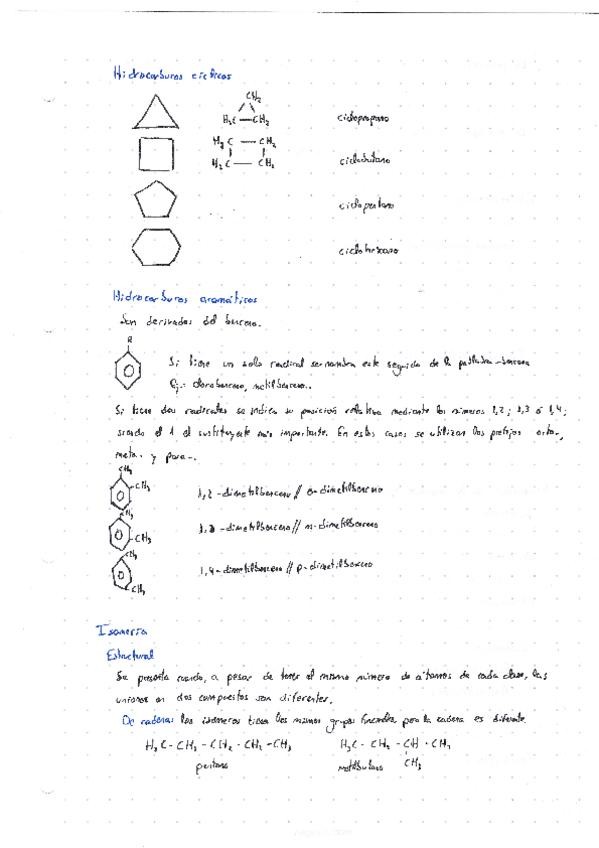 Hidrocarburos cíclicos
CH₂
H₂C — CH₂
ciclopropano
H₂C — CH₂
H₂C — CH₂
ciclobutano
ciclopentano
ciclohexano
Hidrocarburos aromáticos
Son derivados del benceno.
R
Si tiene un solo radical se nombra este seguido de la palabra -benceno
Ej.: clorobenceno, metilbenceno..
Si tiene dos radicales se indica su posición relativa mediante los números 1,2; 1,3 ó 1,4;
siendo el 1 el sustituyente más importante. En estos casos se utilizan los prefijos orto-,
meta- y para-.
CH₃
-CH₃
1,2-dimetilbenceno // o-dimetilbenceno
CH₃
-CH₃
1,3-dimetilbenceno // m-dimetilbenceno
CH₃
CH₃
1,4-dimetilbenceno // p-dimetilbenceno
Isomería
Estructural
Se presenta cuando, a pesar de tener el mismo número de átomos de cada clase, las
uniones en dos compuestos son diferentes.
De cadena: los isómeros tienen los mismos grupos funcionales pero la cadena es diferente
H₃C - CH₂ - CH₂ - CH₂ - CH₃ H₃C - CH₂ - CH - CH₃
CH₃
pentano metilbutano